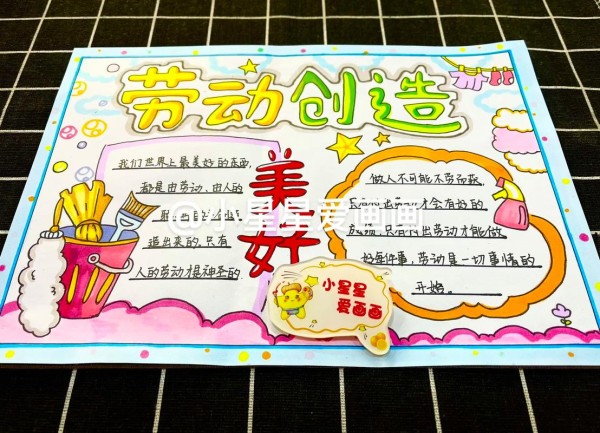 劳动创造
美好
我们世界上最美好的东西,
都是由劳动、由人的
造出来的,只有
人的劳动才是神圣的
做人不可能不劳而获,
才会有好的
成绩,只有付出劳动才能做
好每件事,劳动是一切事情的
开始。
@小星星爱画画
小星星
爱画画